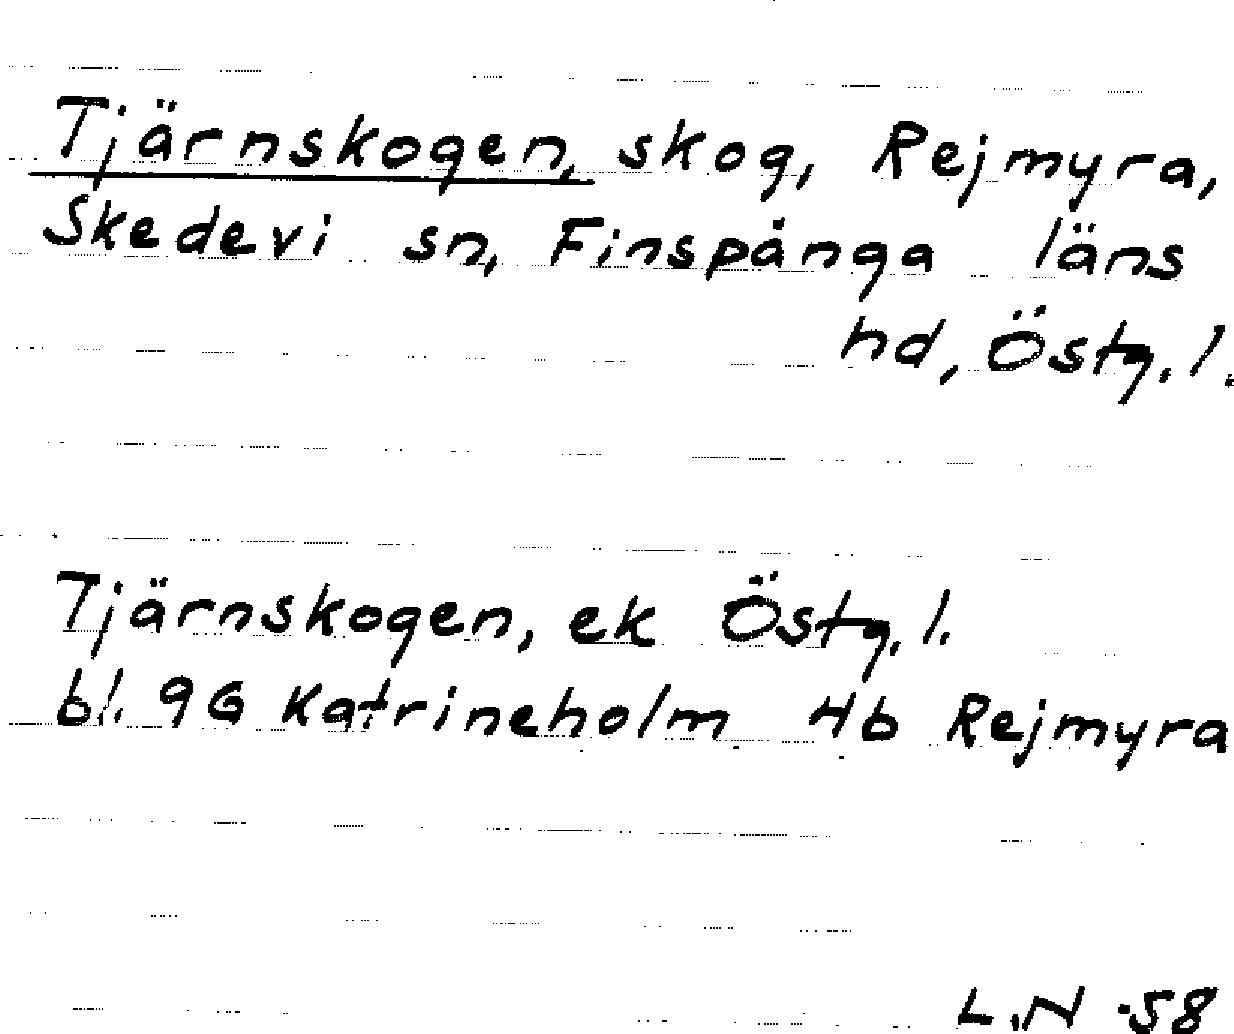 Tjärnskogen, skog, Rejmyra,
Skedevi sn, Finspånga läns
hd, Östg. l.
Tjärnskogen, ek Östg. l.
bl. 9G Katrineholm 4b Rejmyra
L.N -58